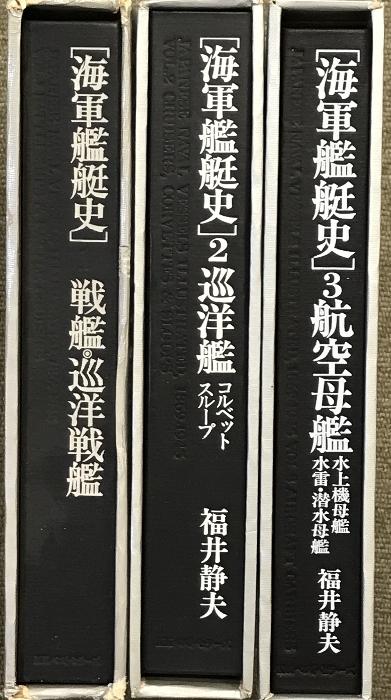 [海軍艦艇史]
戦艦・巡洋戦艦
[海軍艦艇史]2巡洋艦
コルベット
スループ
福井静夫
[海軍艦艇史]3航空母艦
水上機母艦
水雷・潜水母艦
福井静夫